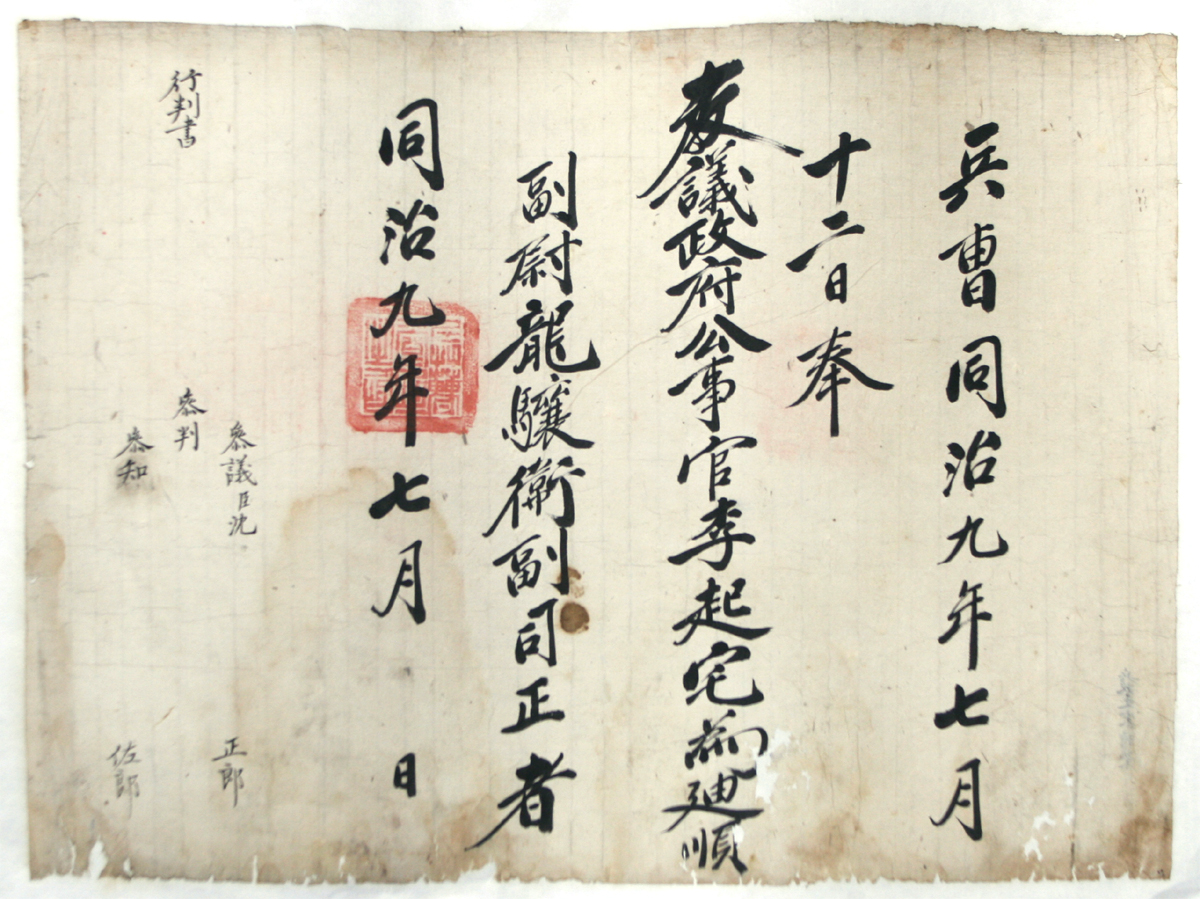 兵曺同治九年七月
十二日奉
敎議政府公事官李起宅爲廸順
副尉龍驤衛副司正者
同治九年七月　日
行判書
參判
參議臣沈
參知
正郎
佐郎